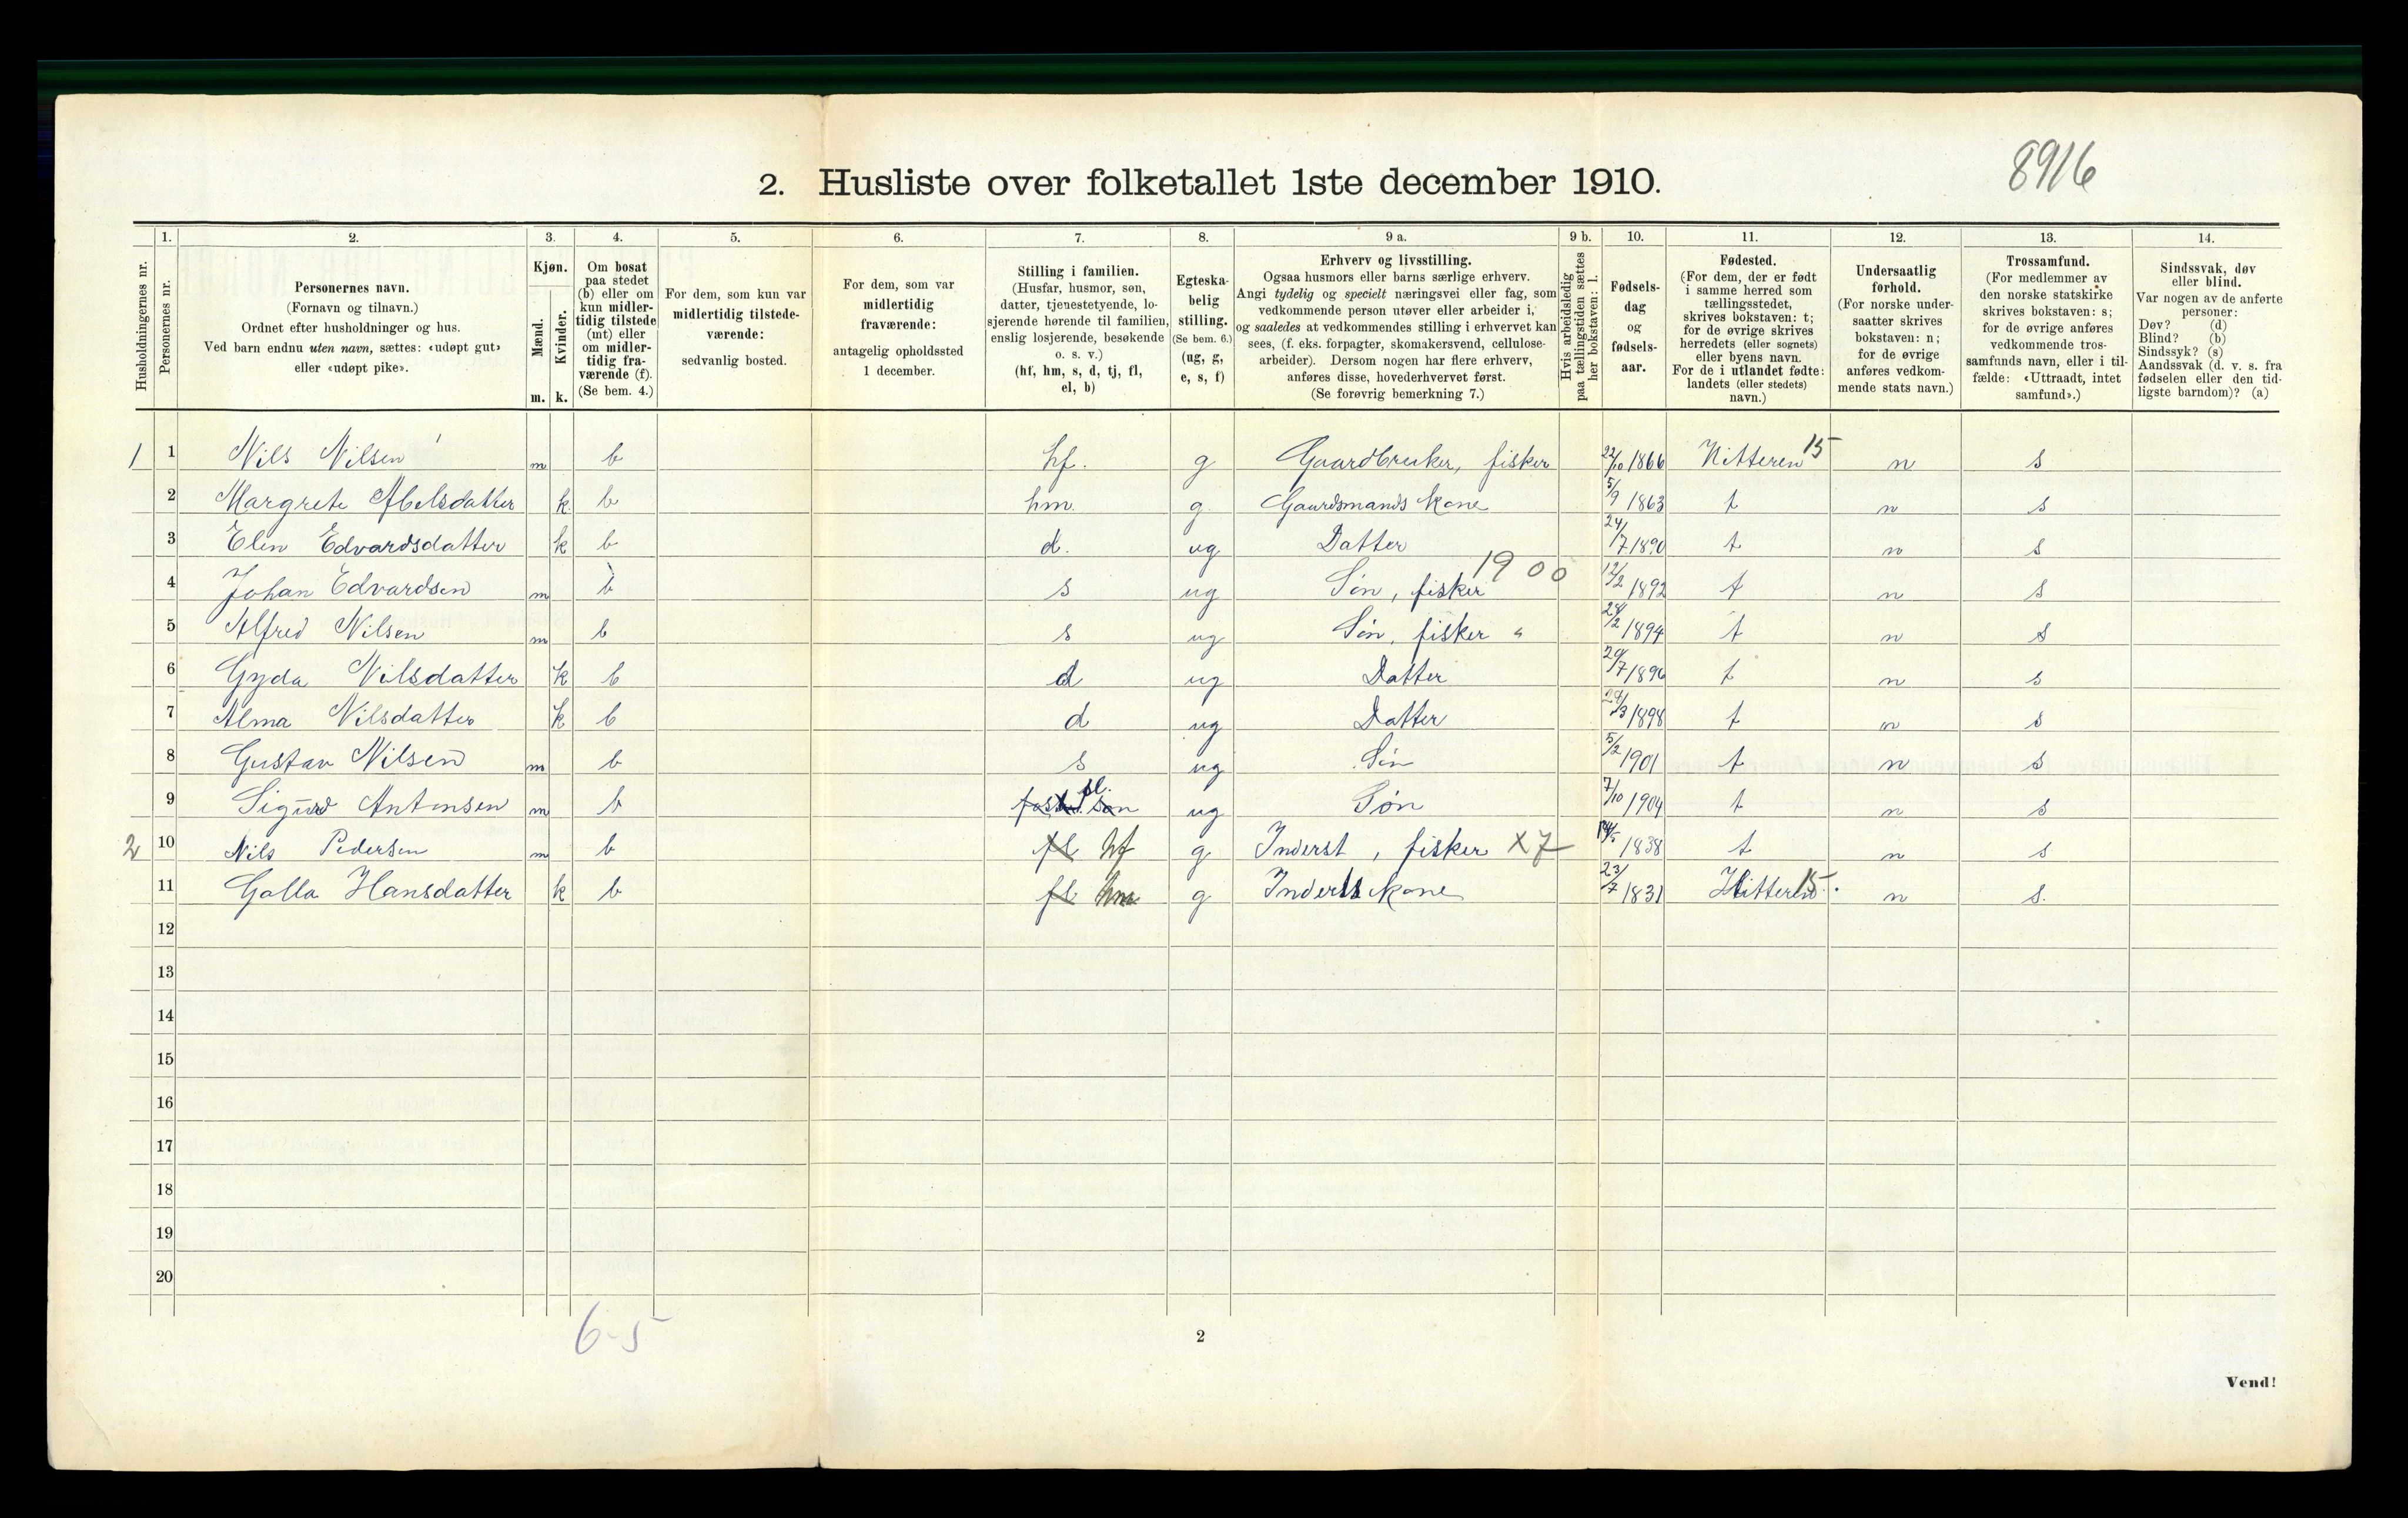 8916
2. Husliste over folketallet 1ste december 1910.
Husholdningernes nr.
1. Personernes nr.
2. Personernes navn.
(Fornavn og tilnavn.)
Ordnet efter husholdninger og hus.
Ved barn endnu uten navn, sættes: «udøpt gut»
eller «udøpt pike».
3. Kjøn.
Mænd. Kvinder.
m. k.
4. Om bosat
paa stedet
(b) eller om
kun midler-
tidig tilstede
(mt) eller
om midler-
tidig fra-
værende (f).
(Se bem. 4.)
5. For dem, som kun var
midlertidig tilstede-
værende:
sedvanlig bosted.
6. For dem, som var
midlertidig
fraværende:
antagelig opholdssted
1 december.
7. Stilling i familien.
(Husfar, husmor, søn,
datter, tjenestetyende, lo-
sjerende hørende til familien,
enslig losjerende, besøkende
o. s. v.)
(hf, hm, s, d, tj, fl,
el, b)
8. Egteska-
belig
stilling.
(Se bem. 6.)
(ug, g,
e, s, f)
9 a. Erhverv og livsstilling.
Ogsaa husmors eller barns særlige erhverv.
Angi tydelig og specielt næringsvei eller fag, som
vedkommende person utøver eller arbeider i,
og saaledes at vedkommendes stilling i erhvervet kan
sees, (f. eks. forpagter, skomakersvend, cellulose-
arbeider). Dersom nogen har flere erhverv,
anføres disse, hovederhvervet først.
(Se forøvrig bemerkning 7.)
9 b. Hvis arbeidsledig
paa tællingstiden sættes
her bokstaven: l.
10. Fødsels-
dag
og
fødsels-
aar.
11. Fødested.
(For dem, der er født
i samme herred som
tællingsstedet,
skrives bokstaven: t;
for de øvrige skrives
herredets (eller sognets)
eller byens navn.
For de i utlandet fødte:
landets (eller stedets)
navn.)
12. Undersaatlig
forhold.
(For norske under-
saatter skrives
bokstaven: n;
for de øvrige
anføres vedkom-
mende stats navn.)
13. Trossamfund.
(For medlemmer av
den norske statskirke
skrives bokstaven: s;
for de øvrige anføres
vedkommende tros-
samfunds navn, eller i til-
fælde: «Uttraadt, intet
samfund».)
14. Sindssvak, døv
eller blind.
Var nogen av de anførte
personer:
Døv? (d)
Blind? (b)
Sindssyk? (s)
Aandssvak (d. v. s. fra
fødselen eller den tid-
ligste barndom)? (a)
1 1 Nils Nilsen m b hf. g Gaardbruker, fisker 22/10 1866 Hitteren 15 n s
2 Margrete Abelsdatter k b hm. g Gaardsmands kone 5/9 1863 t n s
3 Elen Edvardsdatter k b d. ug Datter 24/7 1890 t n s
4 Johan Edvardsen m b s ug Søn, fisker 1900 12/2 1892 t n s
5 Alfred Nilsen m b s ug Søn, fisker " 24/2 1894 t n s
6 Gyda Nilsdatter k b d ug Datter 29/7 1896 t n s
7 Alma Nilsdatter k b d ug Datter 24/3 1898 t n s
8 Gustav Nilsen m b s ug Søn 5/2 1901 t n s
9 Sigurd Antonsen m b søn ug Søn 7/10 1904 t n s
2 10 Nils Pedersen m b fl hf g Inderst, fisker X7 1838 t n s
11 Golla Hansdatter k b fl hm g Inderst kone 23/7 1831 Hitteren 15 n s.
12
13
14
15
16
17
18
19
20
6-5
2
Vend!